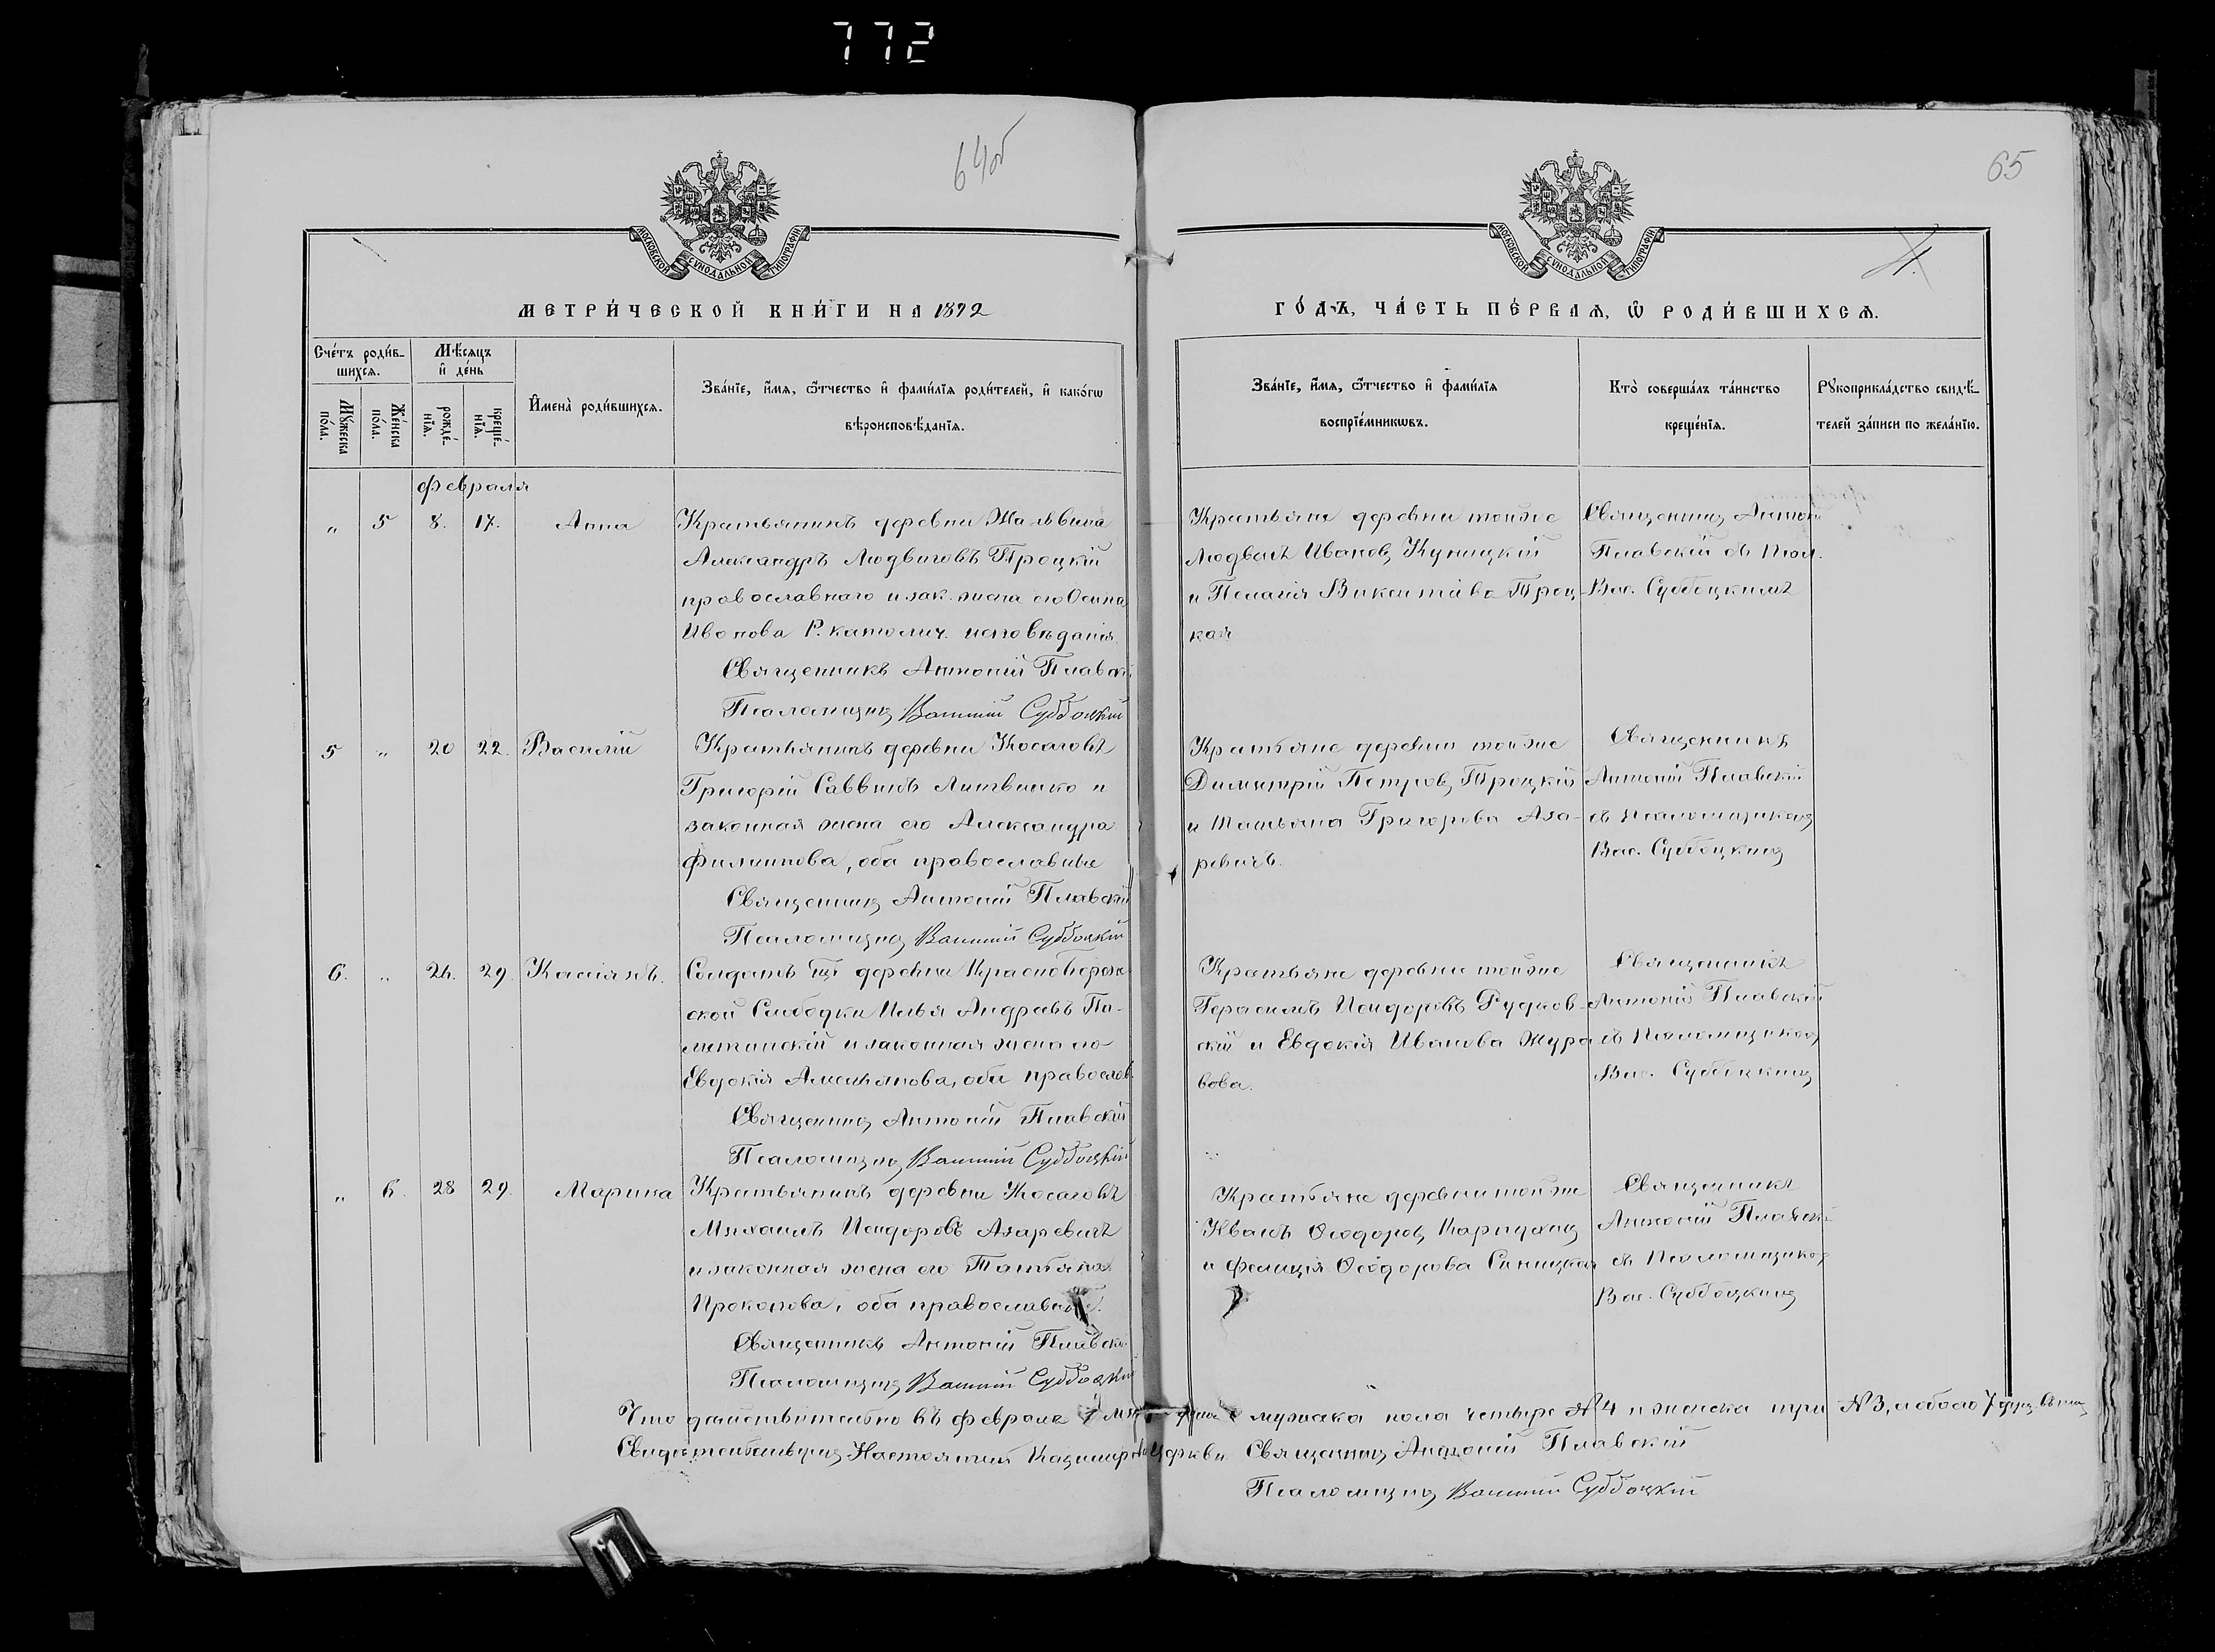 772
64об
65
МОСКОВСКОЙ СѴНОДАЛЬНОЙ ТИПОГРАФІИ
МОСКОВСКОЙ СѴНОДАЛЬНОЙ ТИПОГРАФІИ
4.
МЕТРИ́ЧЕСКОЙ КНИ́ГИ НА 1892
ГО́ДЪ, ЧА́СТЬ ПЕ́РВАѦ, Ѿ РОДИ́ВШИХСѦ.
Сче́тъ роди́в-
шихсѧ.
Мѣ́сѧцъ
и҆ де́нь
Мꙋ́жеска по́ла.
Же́нска по́ла.
рожде́-
нїѧ.
креще́-
нїѧ.
И҆мена̀ роди́вшихсѧ.
Зва́нїе, и҆́мѧ, ѻ҆́тчество и҆ фами́лїѧ роди́телей, и҆ како́гѡ
вѣроисповѣ́данїѧ.
Зва́нїе, и҆́мѧ, ѻ҆́тчество и҆ фами́лїѧ
воспрїе́мникѡвъ.
Кто̀ соверша́лъ та́инство
креще́нїѧ.
Рꙋкоприкла́дство свидѣ́-
телей за́писи по жела́нїю.
Февраля
" 5 8. 17. Анна
Крестьянинъ деревни
Александръ Людвиговъ Троцкій
православнаго и зак. жена его
Р. католич. исповѣданія.
Священникъ Антоній Плавскій
Псаломщикъ Василій Субботскій
Крестьяне деревни тойже
Иванов Куницкій
и Пелагія Викентіева Троц-
кая
Священник Антоній
Плавскій съ Псал.
Вас. Субботскимъ
5 " 20 22. Василій
Крестьянинъ деревни Косаговъ
Григорій Саввинъ Литвинко и
законная жена его Александра
Филиппова, оба православные
Священник Антоній Плавскій
Псаломщик Василій Субботскій
Крестьяне деревни тойже
Димитрій Петров Троцкій
и Татьяна Григорьева Аза-
ревичъ.
Священникъ
Антоній Плавскій
съ псаломщиком
Вас. Субботским
6. " 24. 29. Касіянъ.
Солдатъ деревни
ской Слободки Илья
и законная жена его
Евдокія оба правосл.
Священник Антоній Плавскій
Псаломщик Василій Субботскій
Крестьяне деревни тойже
Герасимъ Исидоровъ Рудков-
скій и Евдокія Иванова Жура
вова.
Священникъ
Антоній Плавскій
съ Псаломщиком
Вас. Субботским
" 6. 28 29. Марина
Крестьянинъ деревни Косаговъ
Михаилъ Исидоровъ Азаревичъ
и законная жена его Татьяна
Прокопова, оба православные.
Священникъ Антоній Плавскій
Псаломщик Василій Субботскій
Крестьяне деревни тойже
Иванъ Ѳеодоров
и Фелиція Ѳеодорова Синицкая
Священникъ
Антоній Плавскій
съ Псаломщиком
Вас. Субботским
Что дѣйствительно въ февралѣ мужска пола четыре №4 и женска три №3, а обоего 7
Настоятель церкви Священник Антоній Плавскій
Псаломщик Василій Субботскій